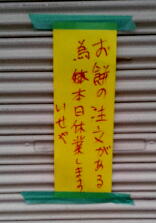 お餅の注文がある
為本日休業します
いせや